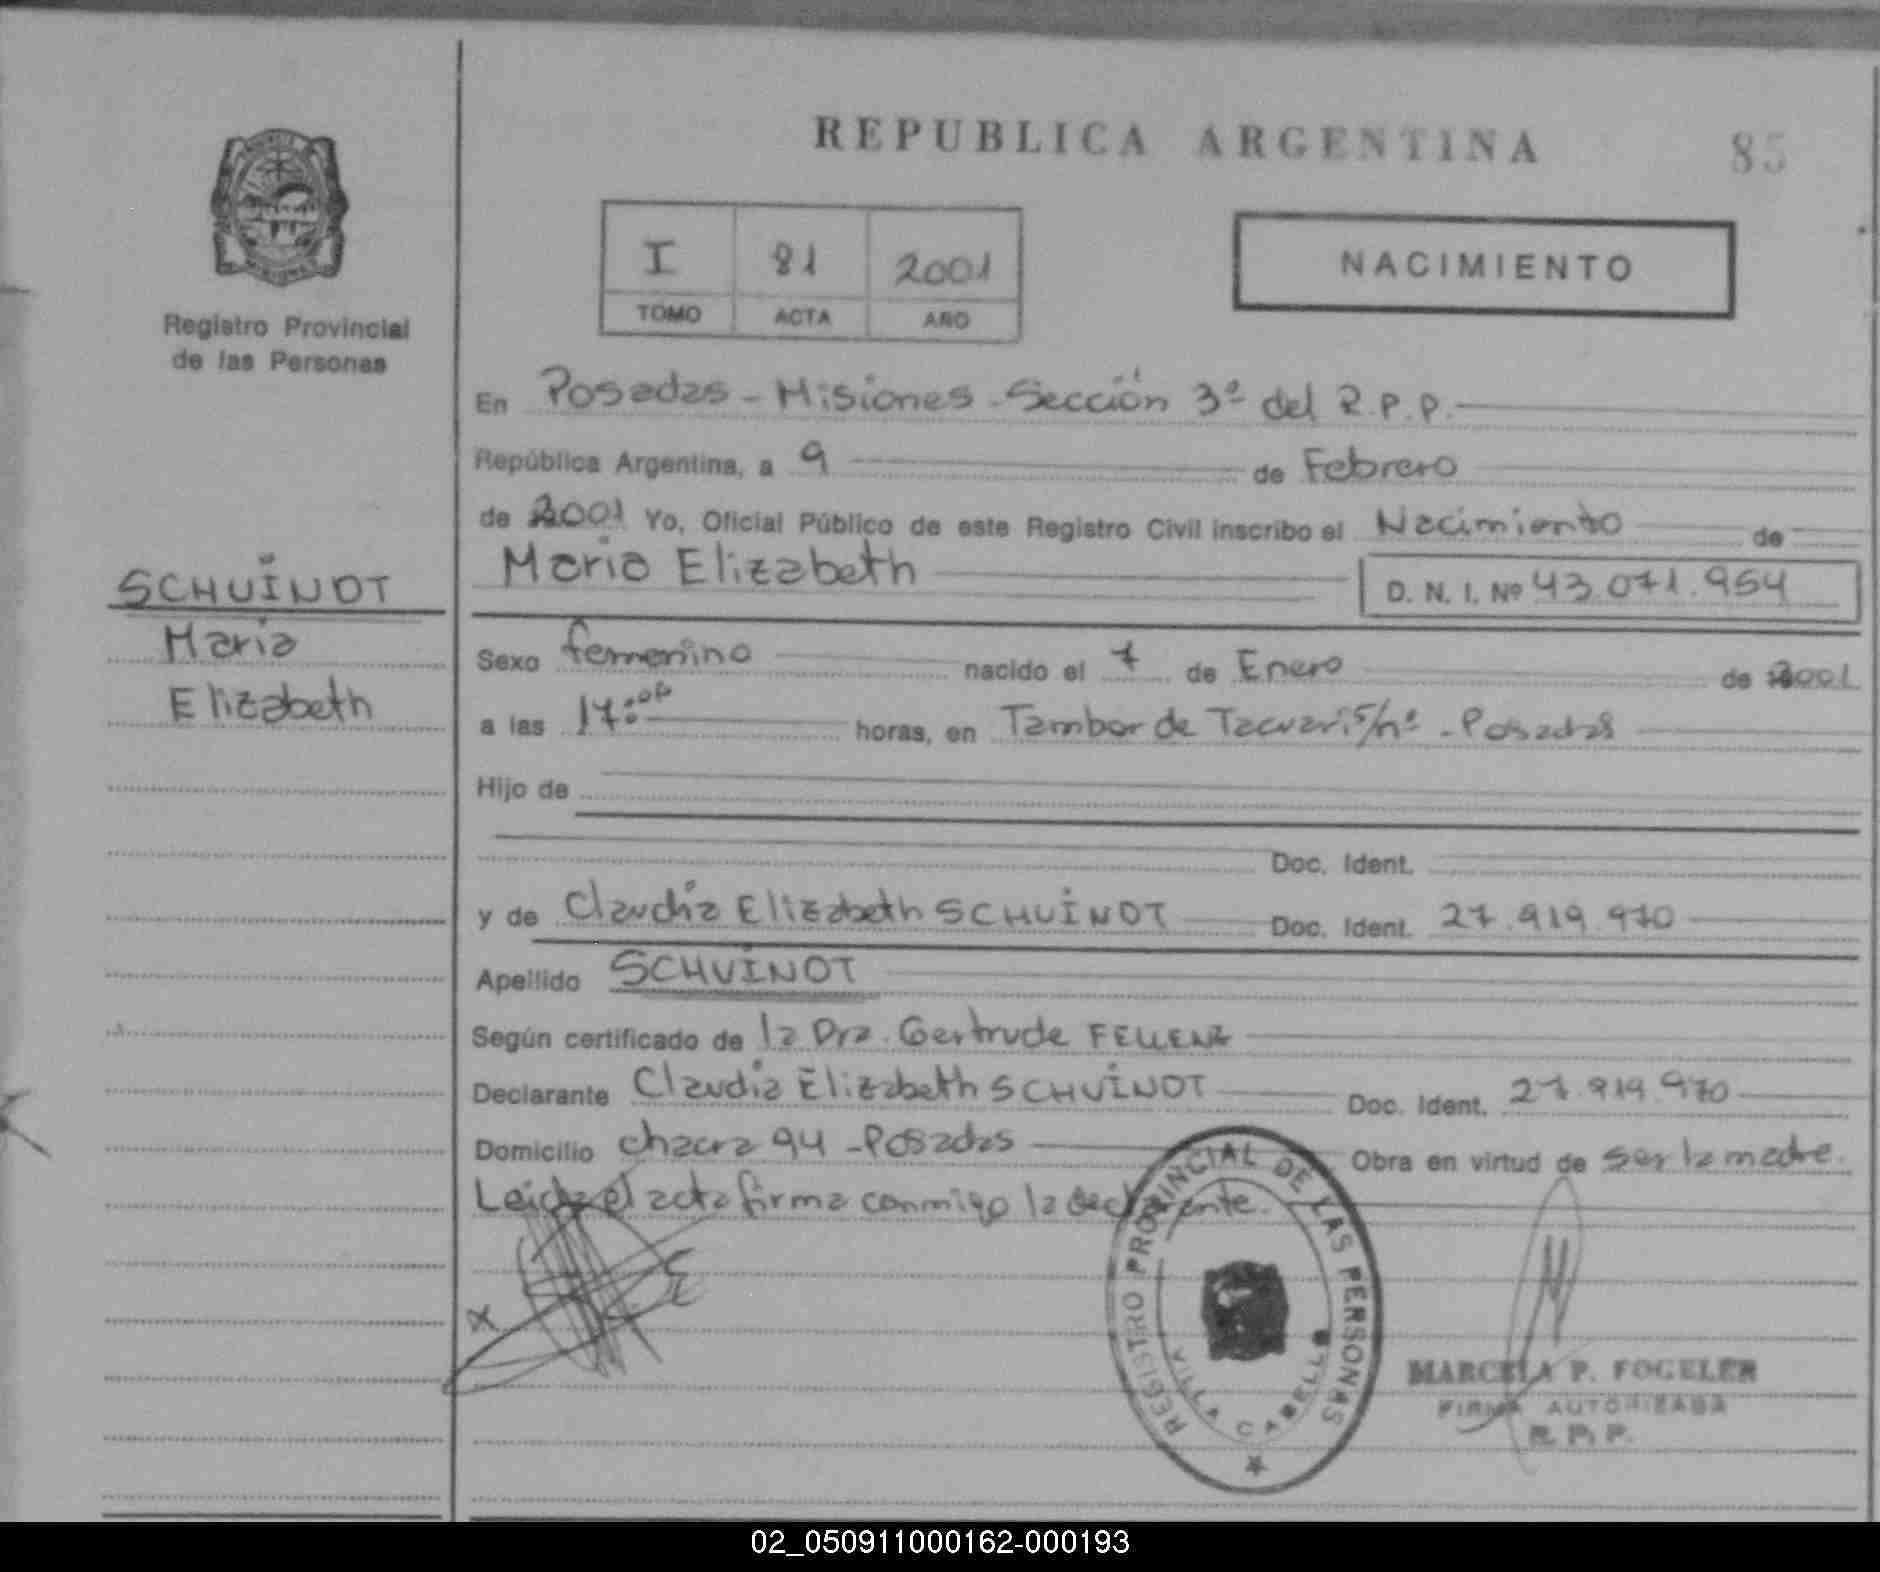 REPUBLICA ARGENTINA
85
MISIONES
Registro Provincial
de las Personas
I 81 2001
TOMO ACTA AÑO
NACIMIENTO
En Posadas - Misiones - Sección 3ª del R.P.P.
República Argentina, a 9 de Febrero
de 2001 Yo, Oficial Público de este Registro Civil inscribo el Nacimiento de
Maria Elizabeth D. N. I. Nº 43.071.954
SCHUINDT
Maria
Elizabeth
Sexo femenino nacido el 7 de Enero de 2001
a las 17:00 horas, en Tambor de Tacuari s/nº - Posadas
Hijo de
Doc. Ident.
y de Claudia Elizabeth SCHUINDT Doc. Ident. 27.919.970
Apellido SCHUINDT
Según certificado de la Dra. Gertrude FELLENZ
Declarante Claudia Elizabeth SCHUINDT Doc. Ident. 27.919.970
Domicilio chacra 94 - Posadas Obra en virtud de ser la madre.
Leida el acta firma conmigo la declarante.
x
REGISTRO PROVINCIAL DE LAS PERSONAS
VILLA CABELLO
MARCELA P. FOGELER
FIRMA AUTORIZADA
R. P. P.
02_050911000162-000193